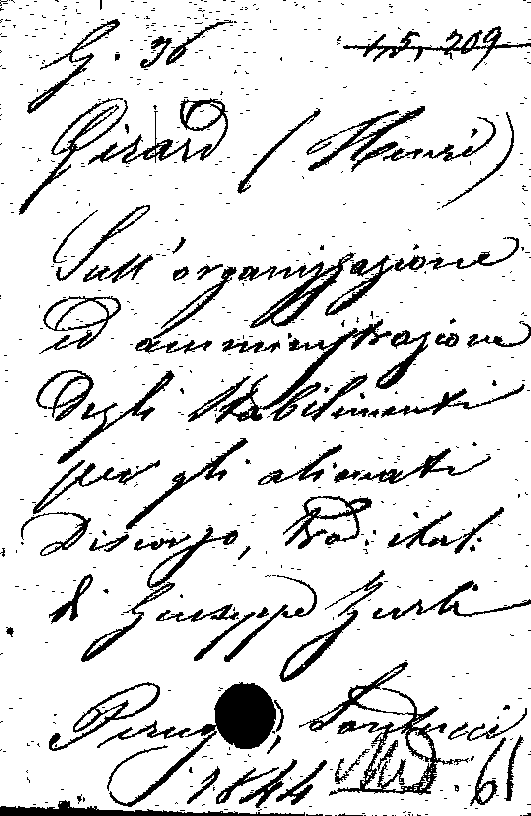 G. 36 15, 209
Girard (Henri)
Sull'organizzazione
ed amministrazione
degli stabilimenti
per gli alienati
Discorso, trad: ital:
di Giuseppe
Perug , Santucci
1844 Md. 61